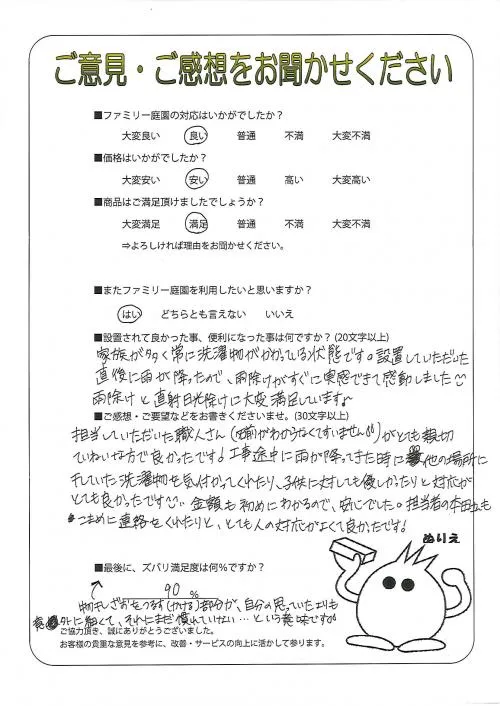 ご意見・ご感想をお聞かせください
■ファミリー庭園の対応はいかがでしたか?
大変良い 良い 普通 不満 大変不満
■価格はいかがでしたか?
大変安い 安い 普通 高い 大変高い
■商品はご満足頂けましたでしょうか?
大変満足 満足 普通 不満 大変不満
⇒よろしければ理由をお聞かせください。
■またファミリー庭園を利用したいと思いますか?
はい どちらとも言えない いいえ
■設置されて良かった事、便利になった事は何ですか? (20文字以上)
家族が多く常に洗濯物がかかっている状態です。設置していただいた
直後に雨が降ったので、雨除けがすぐに実感できて感動しました
雨除けと直射日光除けに大変満足しています。
■ご感想・ご要望などをお書きくださいませ。(30文字以上)
担当していただいた職人さん(名前がわからなくてすいません)がとても親切
ていねいな方で良かったです!工事途中に雨が降ってきた時に他の場所に
干していた洗濯物を気付かってくれたり、子供に対しても優しかったりと対応が
とても良かったです 金額も初めにわかるので、安心でした。担当者の本田さんも
こまめに連絡をくれたりと、とても人の対応がよくて良かったです!
ぬりえ
■最後に、ズバリ満足度は何%ですか?
90 %
物干しざおをつるす(かける)部分が、自分の思っていたよりも
以外に細くて、それにまだ慣れていない…という意味です
ご協力頂き、誠にありがとうございました。
お客様の貴重な意見を参考に、改善・サービスの向上に活かして参ります。